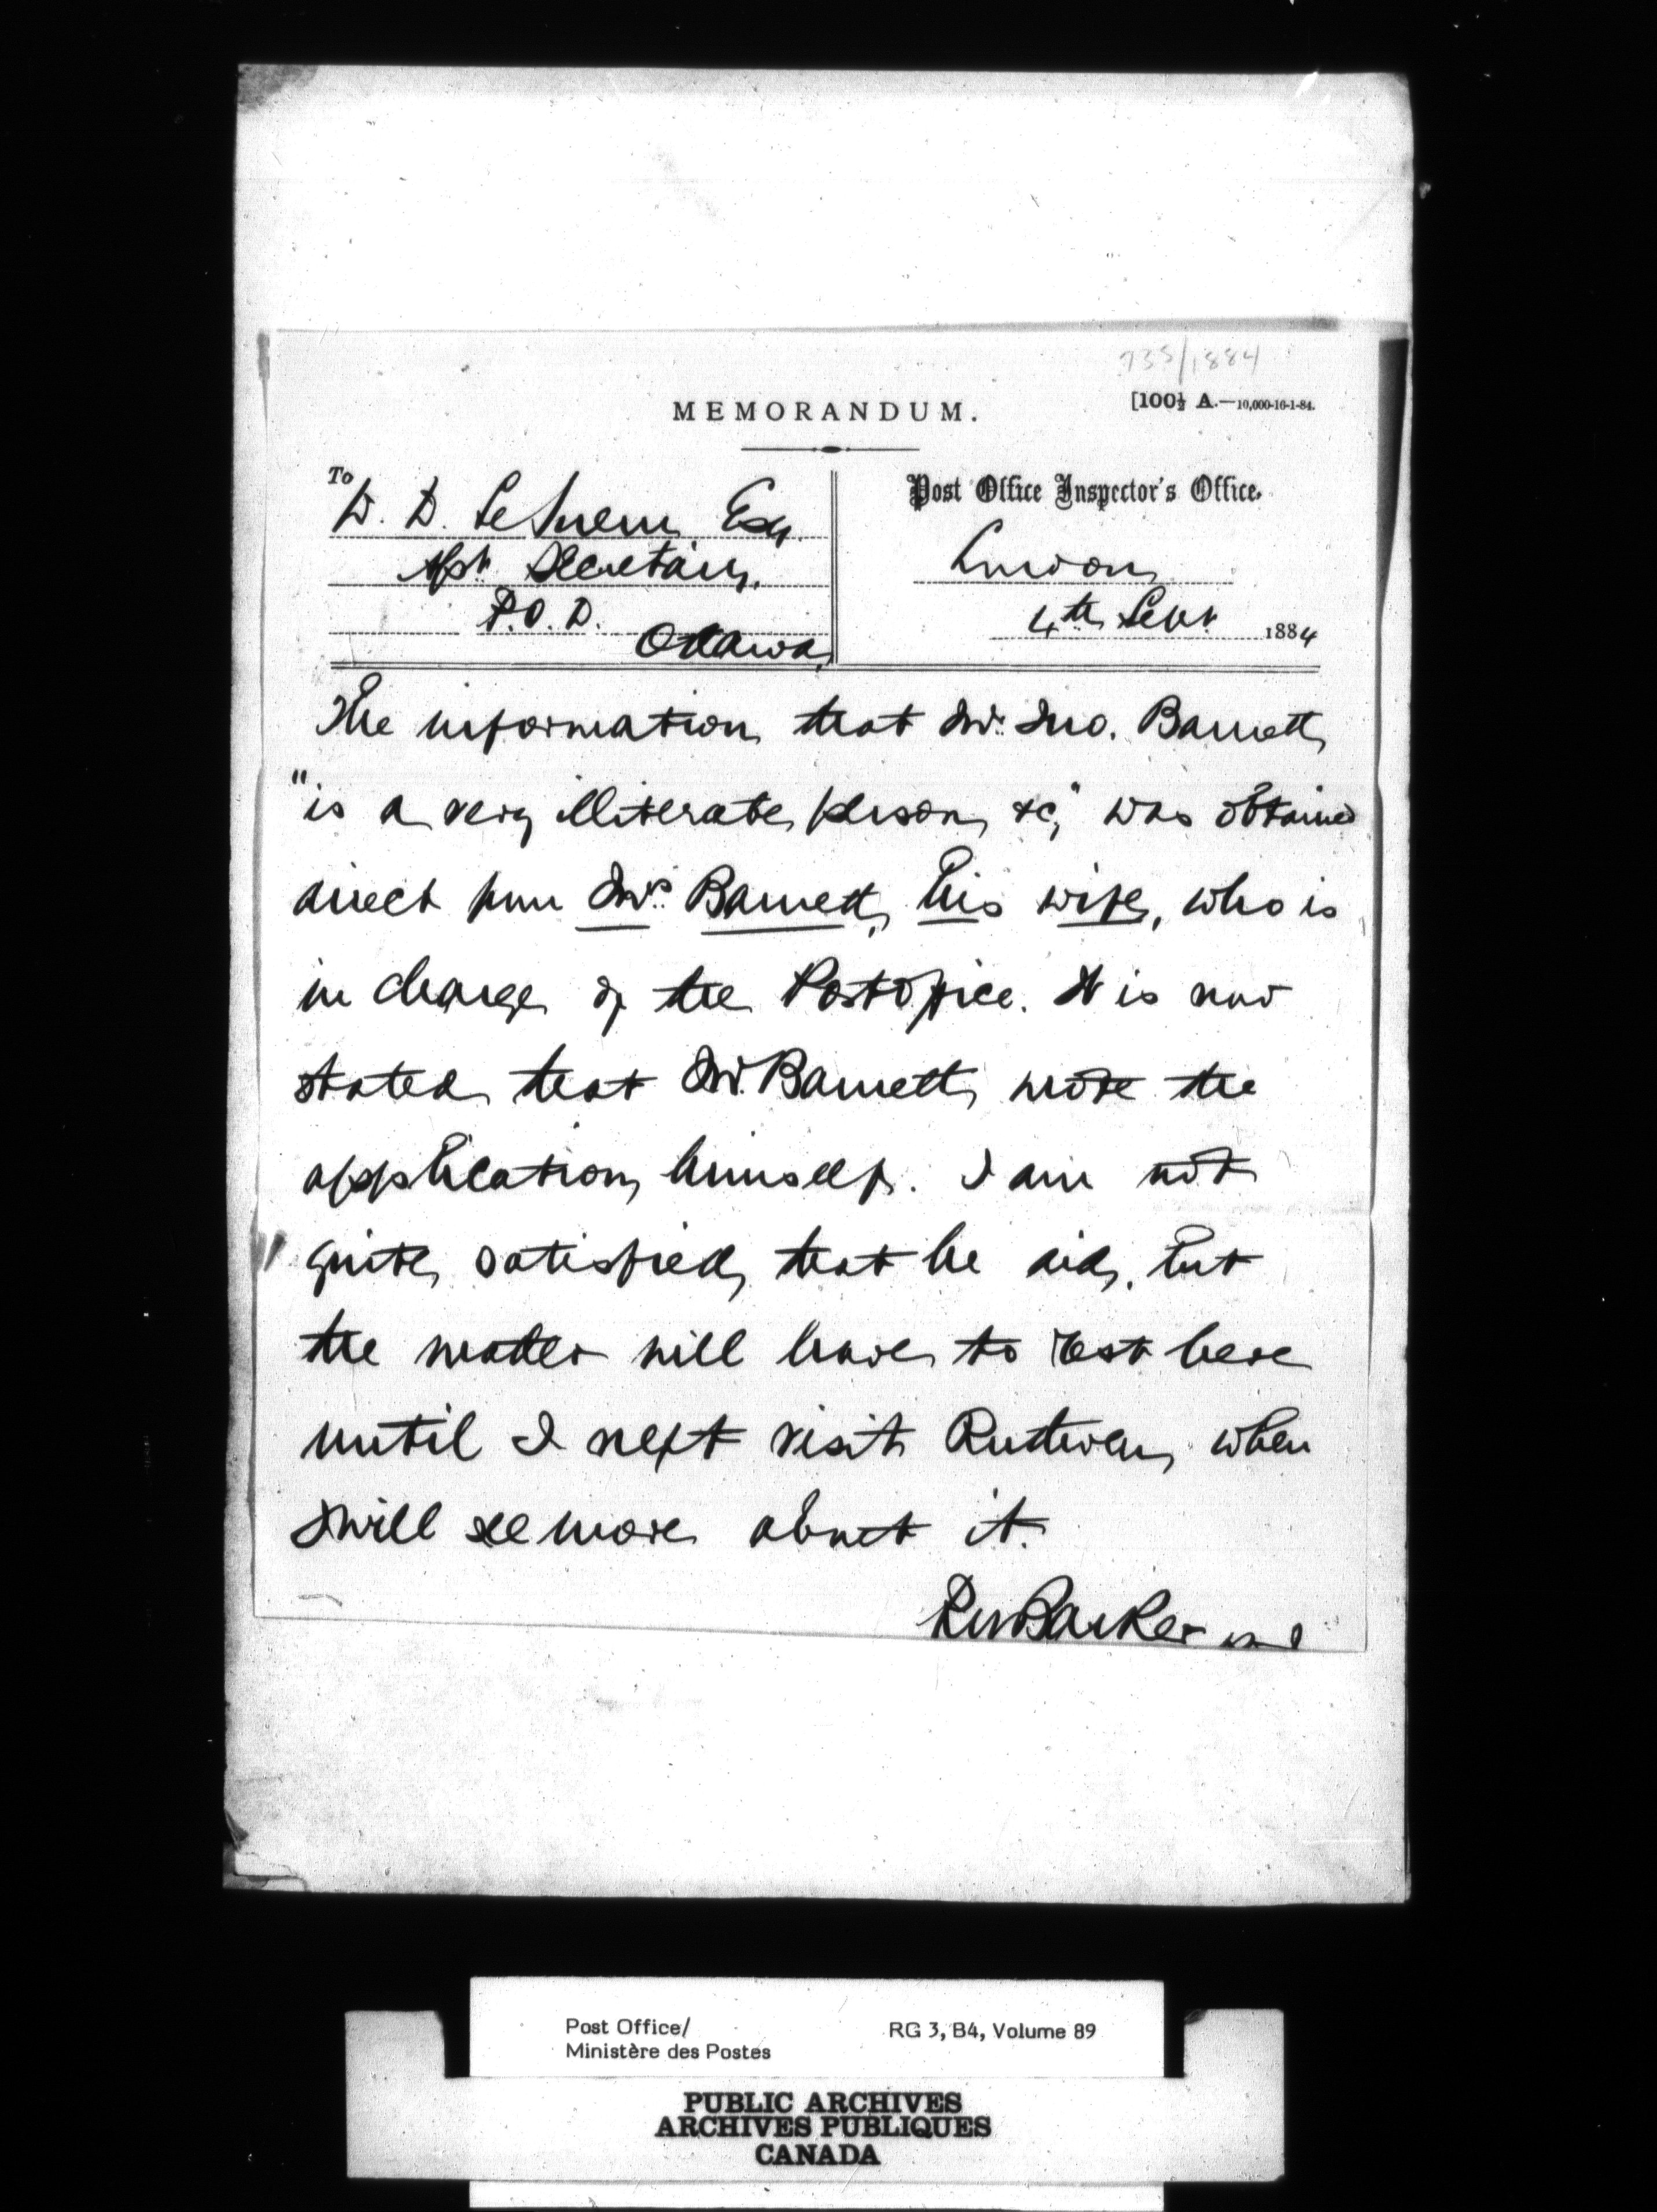 735/1884
MEMORANDUM.
[100½ A.—10,000-16-1-84.
To
W. D. LeSueur Esq.
Asst. Secretary,
P.O.D.
Ottawa,
Post Office Inspector's Office.
London
4th Sept. 1884
The information that Mr. Jno. Barnett
"is a very illiterate person, &c," was obtained
direct from Mrs. Barnett, his wife, who is
in charge of the Post Office. It is now
stated that Mr. Barnett wrote the
application himself. I am not
quite satisfied that he did, but
the matter will have to rest here
until I next visit Ruthven, when
I will see more about it.
RWBarker
Post Office/
Ministère des Postes
RG 3, B4, Volume 89
PUBLIC ARCHIVES
ARCHIVES PUBLIQUES
CANADA